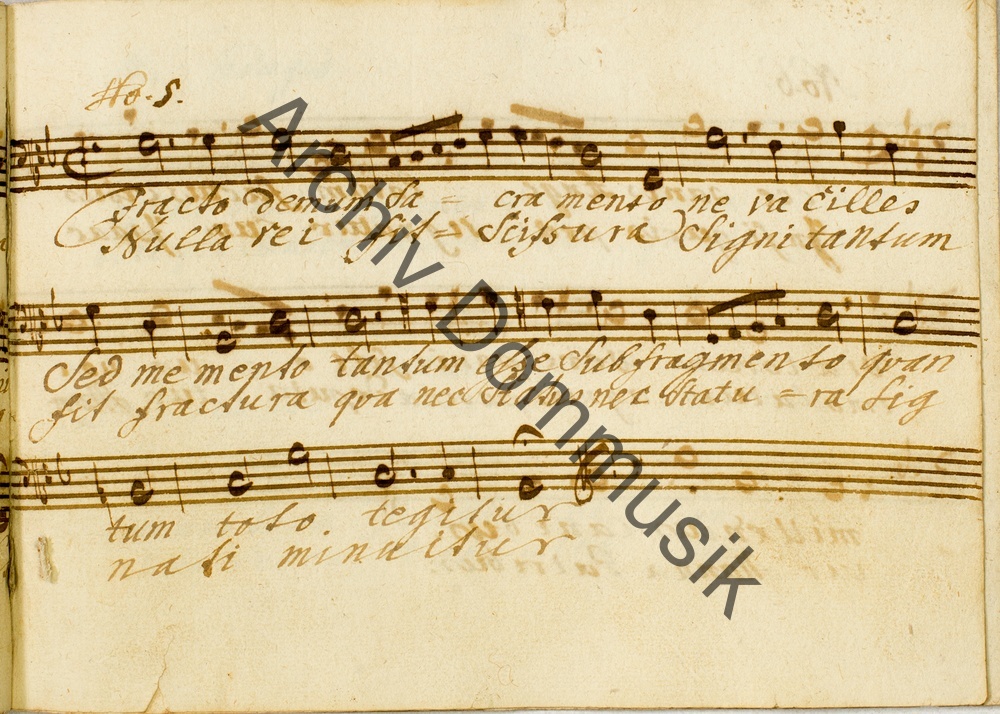 No. 5.
Fracto demum sa = cra mento ne va cilles
Nulla rei fit = Scissura Signi tantum
Sed me mento tantum Esse Sub fragmento qvan
fit fractura qva nec Status nec Statu = ra Sig
tum toto tegitur
nati minuitur
Archiv Dommusik